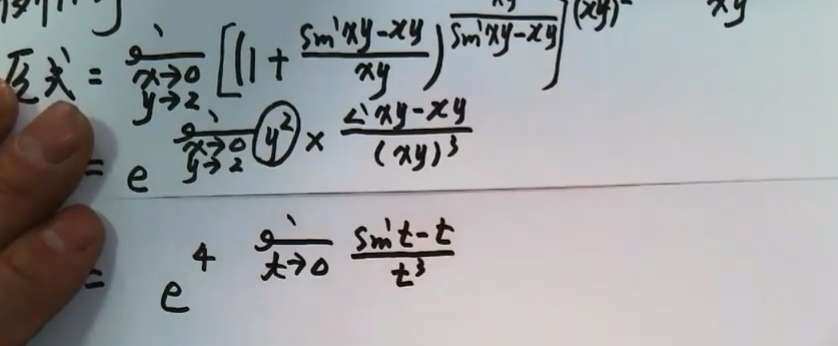 原式 = lim x→0 y→2 [(1 + (sin xy - xy)/(xy))^(xy/(sin xy - xy))] (xy) xy
= e^(lim x→0 y→2 y² × (sin xy - xy)/(xy)³)
= e^(4 lim t→0 (sin t - t)/t³)